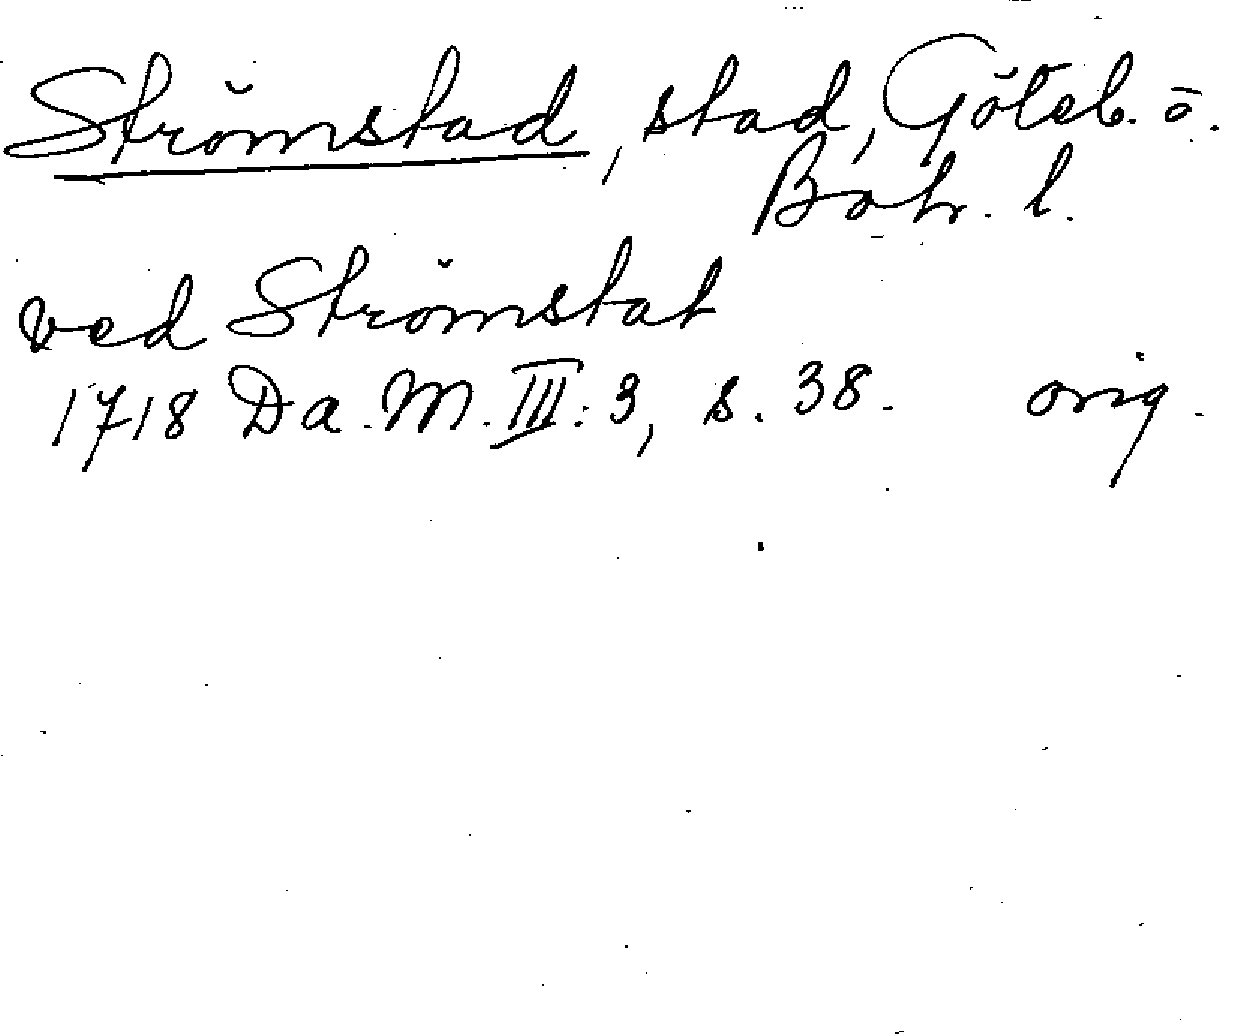 Strömstad, stad, Göteb. o.
Boh. l.
ved Strömstat
1718 Da. M. III: 3, s. 38. orig.